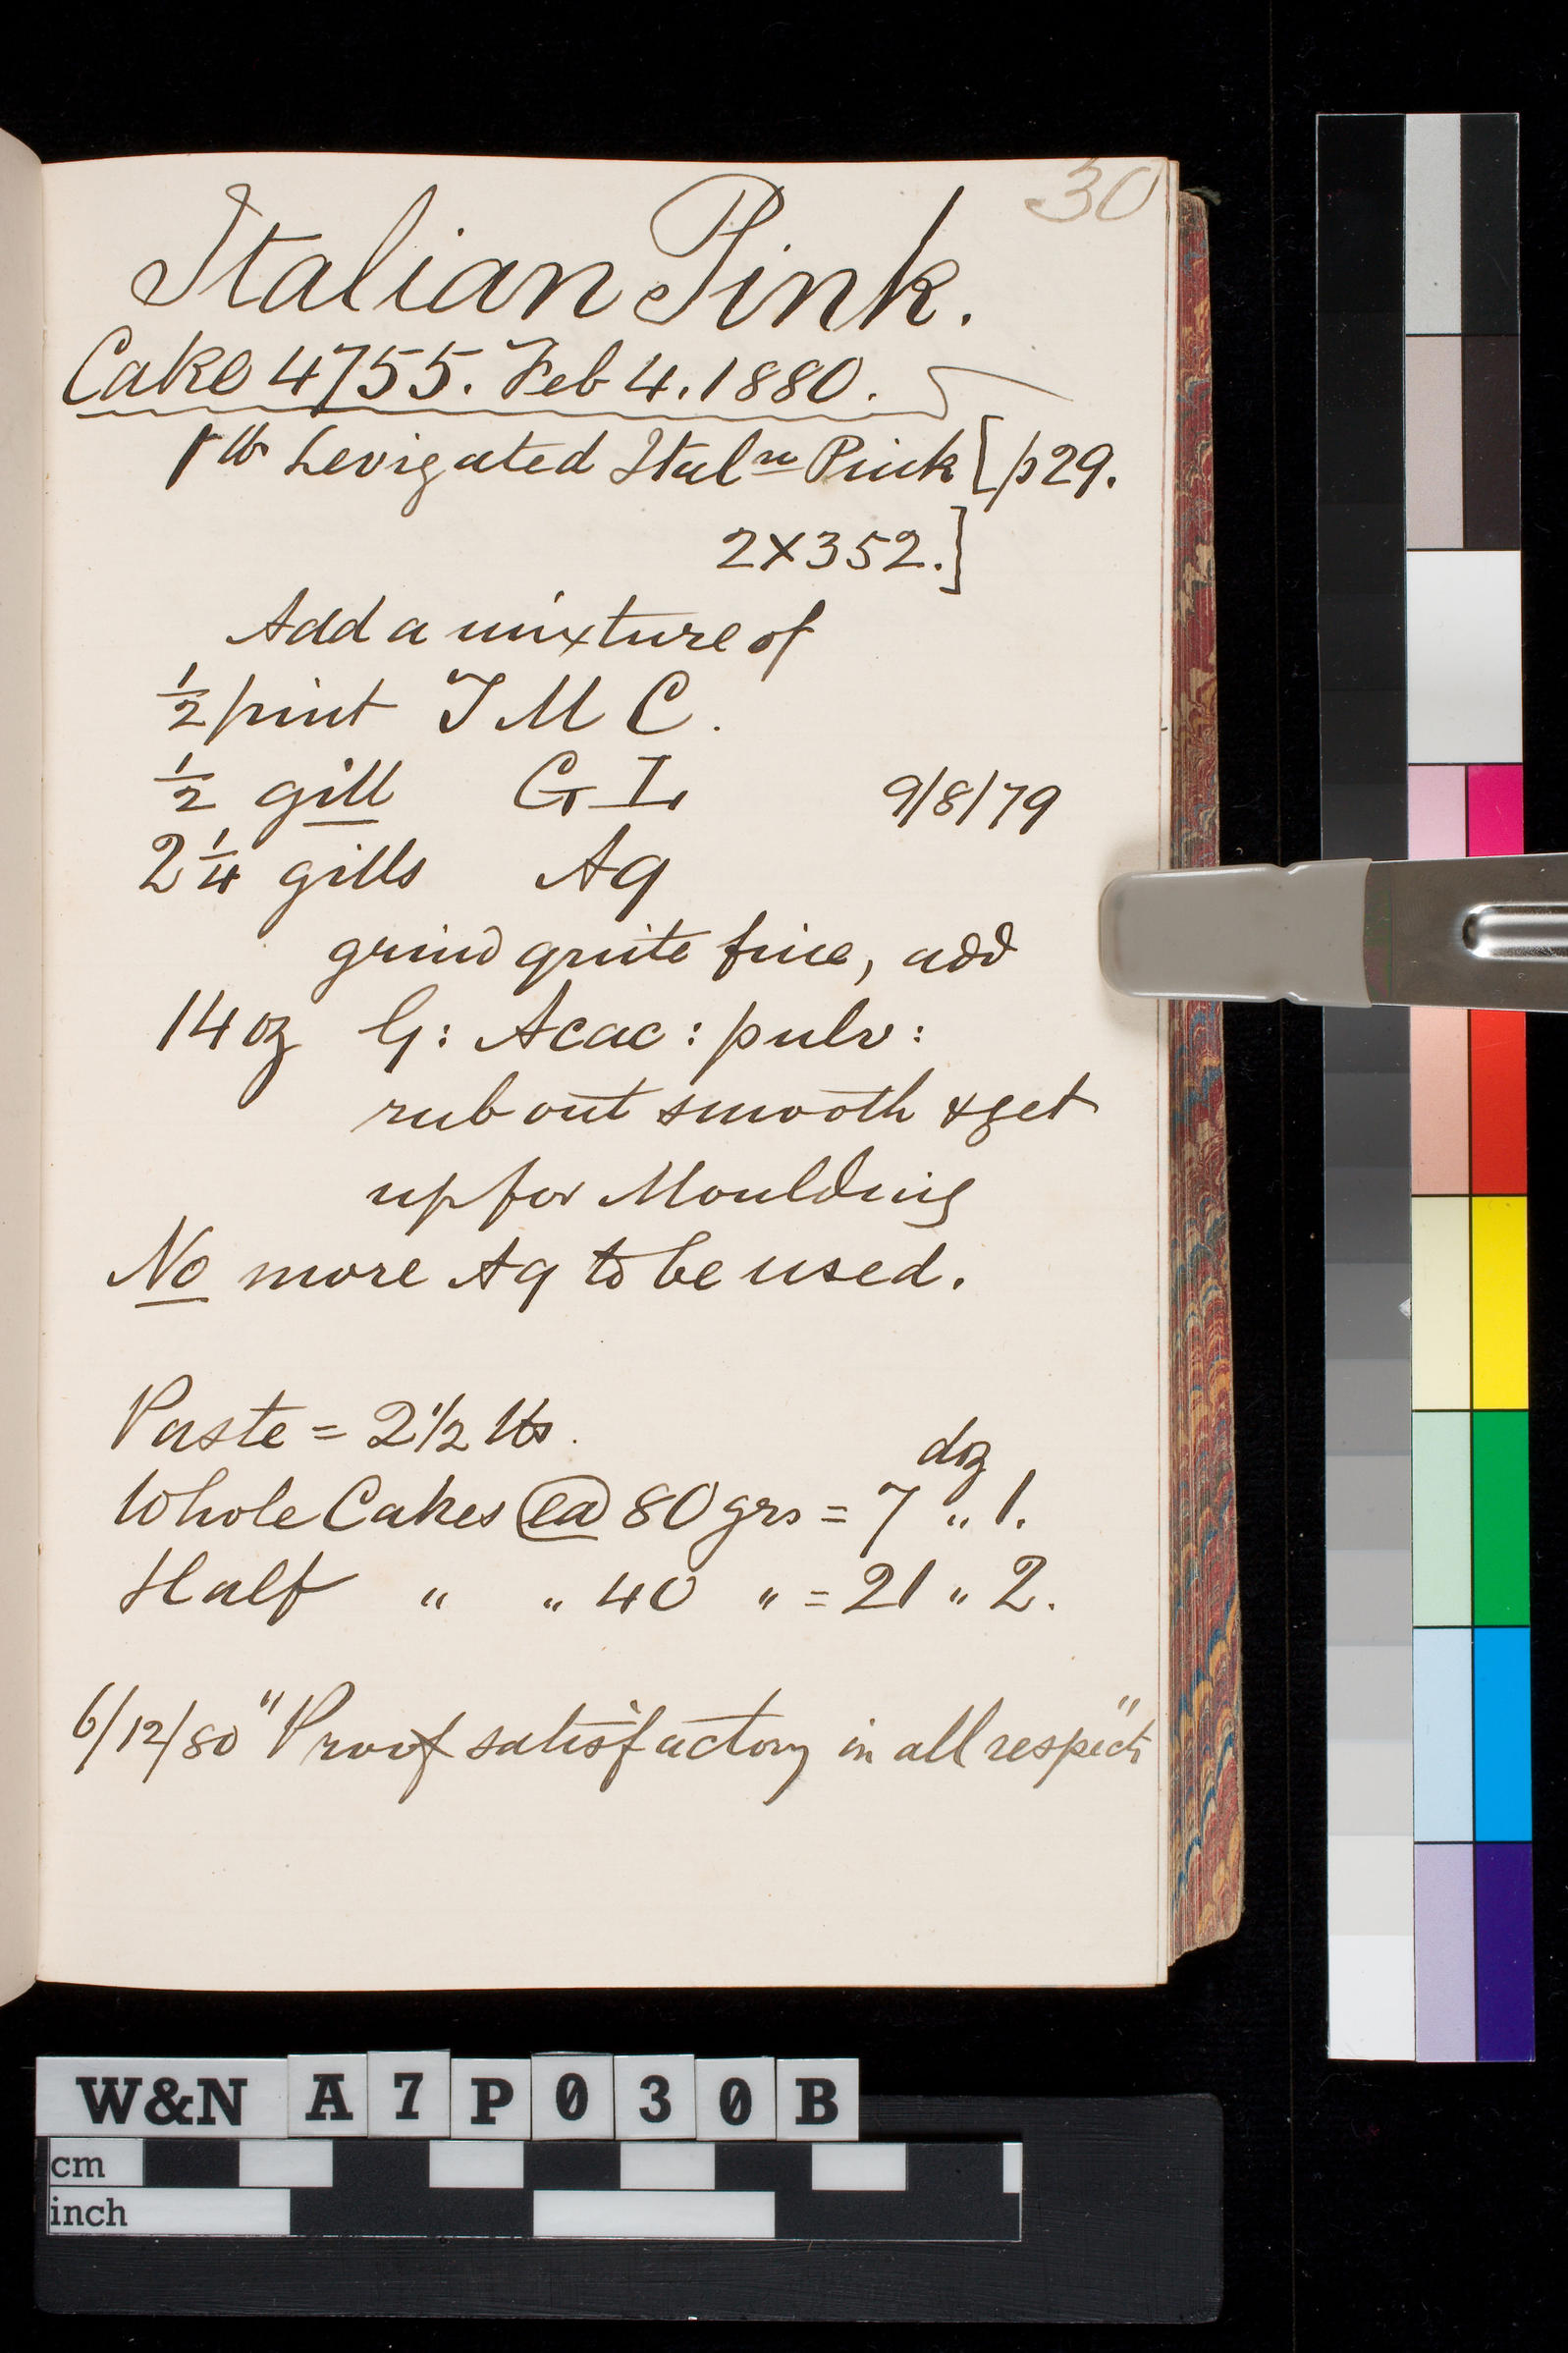 30
Italian Pink.
Cake 4755. Feb 4. 1880.
1 lb Levigated Italn Pink [p29.
2X352.]
Add a mixture of
½ pint T M C.
½ gill G I, 9/8/79
2¼ gills Aq
grind quite fine, add
14 oz G: Acac: pulv:
rub out smooth & get
up for Moulding
No more Aq to be used.
Paste = 2½ lbs.
doz
Whole Cakes @ ea 80 grs = 7 " 1.
Half " " 40 " = 21 " 2.
6/12/80 "Proof satisfactory in all respects"
W&N A7P030B
cm
inch